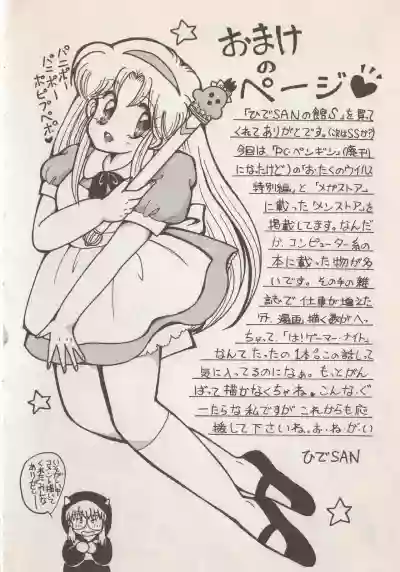 おまけ
の
ページ♥
パニポー
パニポー
ポピプペポ♡
「ひでSANの館S」を買って
くれてありがとです。(次はSSか?)
今回は「PC・ペンギン」(廃刊
になったけど)の「おたくのウイルス
特別編」と「メガストア」
に載った「メンストア」を
掲載してます。なんだ
か、コンピューター系の
本に載った物が多
いです。その手の雑
誌で仕事が増えた
分、漫画描く数がへっ
ちゃって、「は!ゲーマー・ナイト」
なんてたったの1本。この話し
気に入ってるのになぁ。もっとがん
ばって描かなくちゃね。こんなぐ
ーたらな私ですが、これからも応
援して下さいね。お・ね・が・い
ひでSAN
コメント描いて
くれたみんな
ありがとー